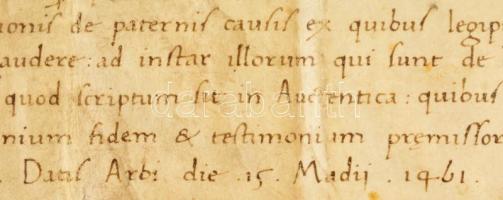 ionis de paternis causis ex quibus legip
audere: ad instar illorum qui sunt de
quod scriptum sit in Auctentica: quibus
nium fidem & testimonium pręmissor
. Datis Arbi die .15. Madii .1461.
darabanth